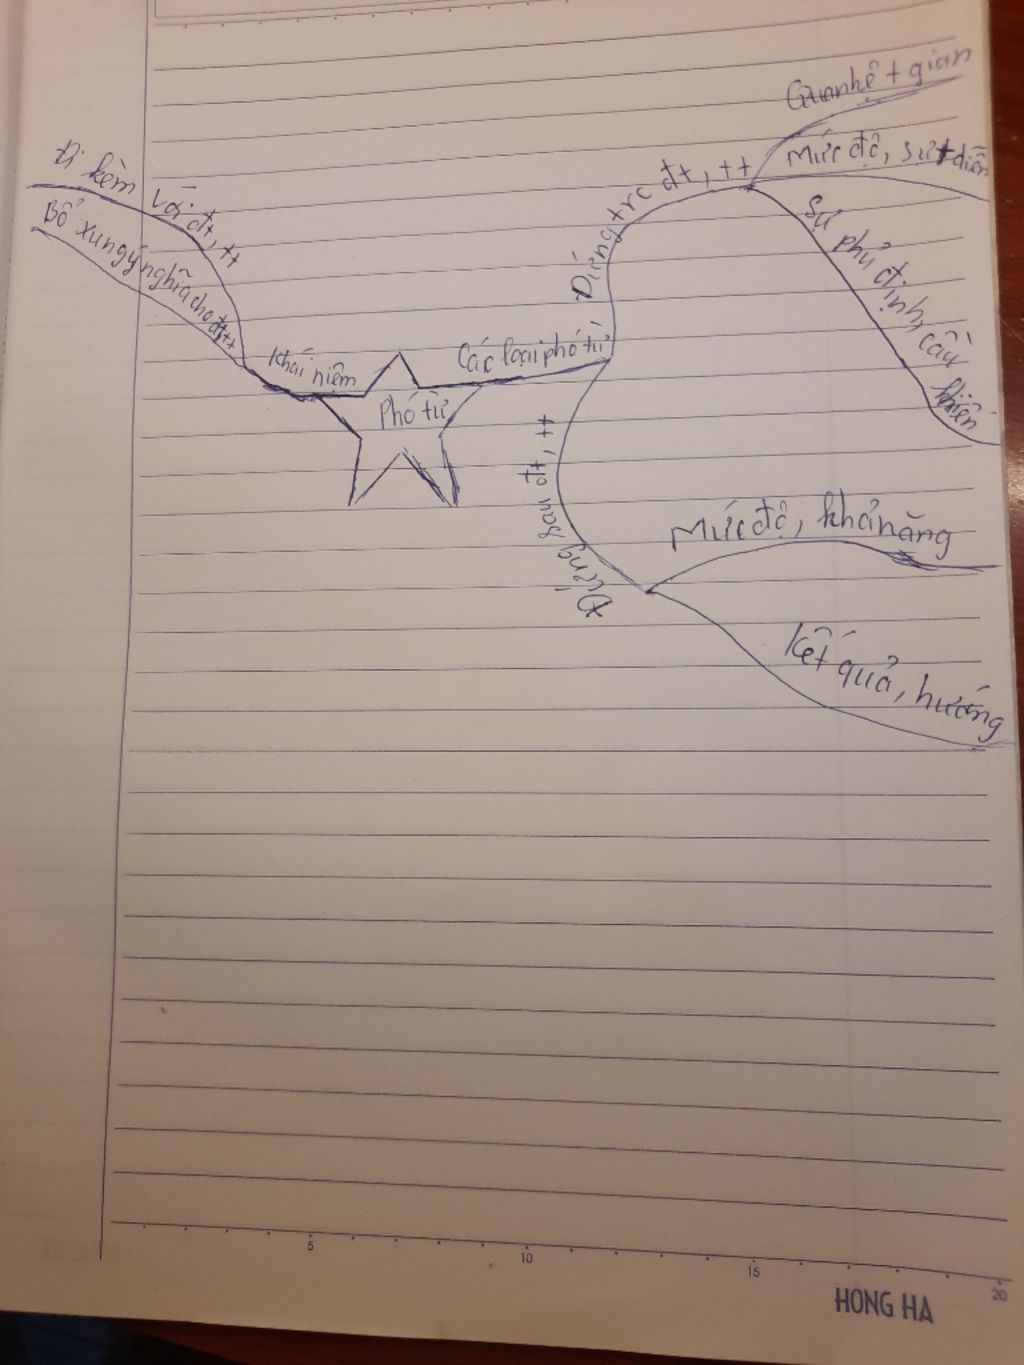 Đi kèm với đt, tt
Bổ xung ý nghĩa cho đt, tt
Khái niệm
Phó từ
Các loại phó từ
Đứng trc đt, tt
Quan hệ t gian
Mức độ, sự t diễn
Sự phủ định, cầu khiến
Đứng sau đt, tt
Mức độ, khả năng
Kết quả, hướng
5
10
15
20
HONG HA